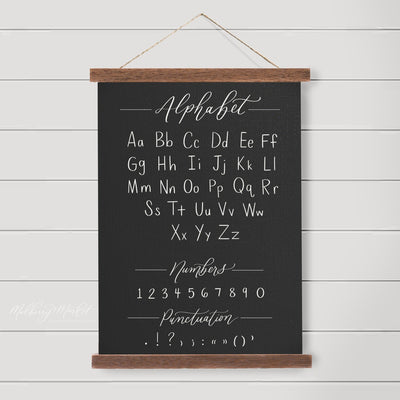 Alphabet
Aa Bb Cc Dd Ee Ff
Gg Hh Ii Jj Kk Ll
Mm Nn Oo Pp Qq Rr
Ss Tt Uu Vv Ww
Xx Yy Zz
Numbers
1 2 3 4 5 6 7 8 9 0
Punctuation
. ! ? , ; : « » ( ) '